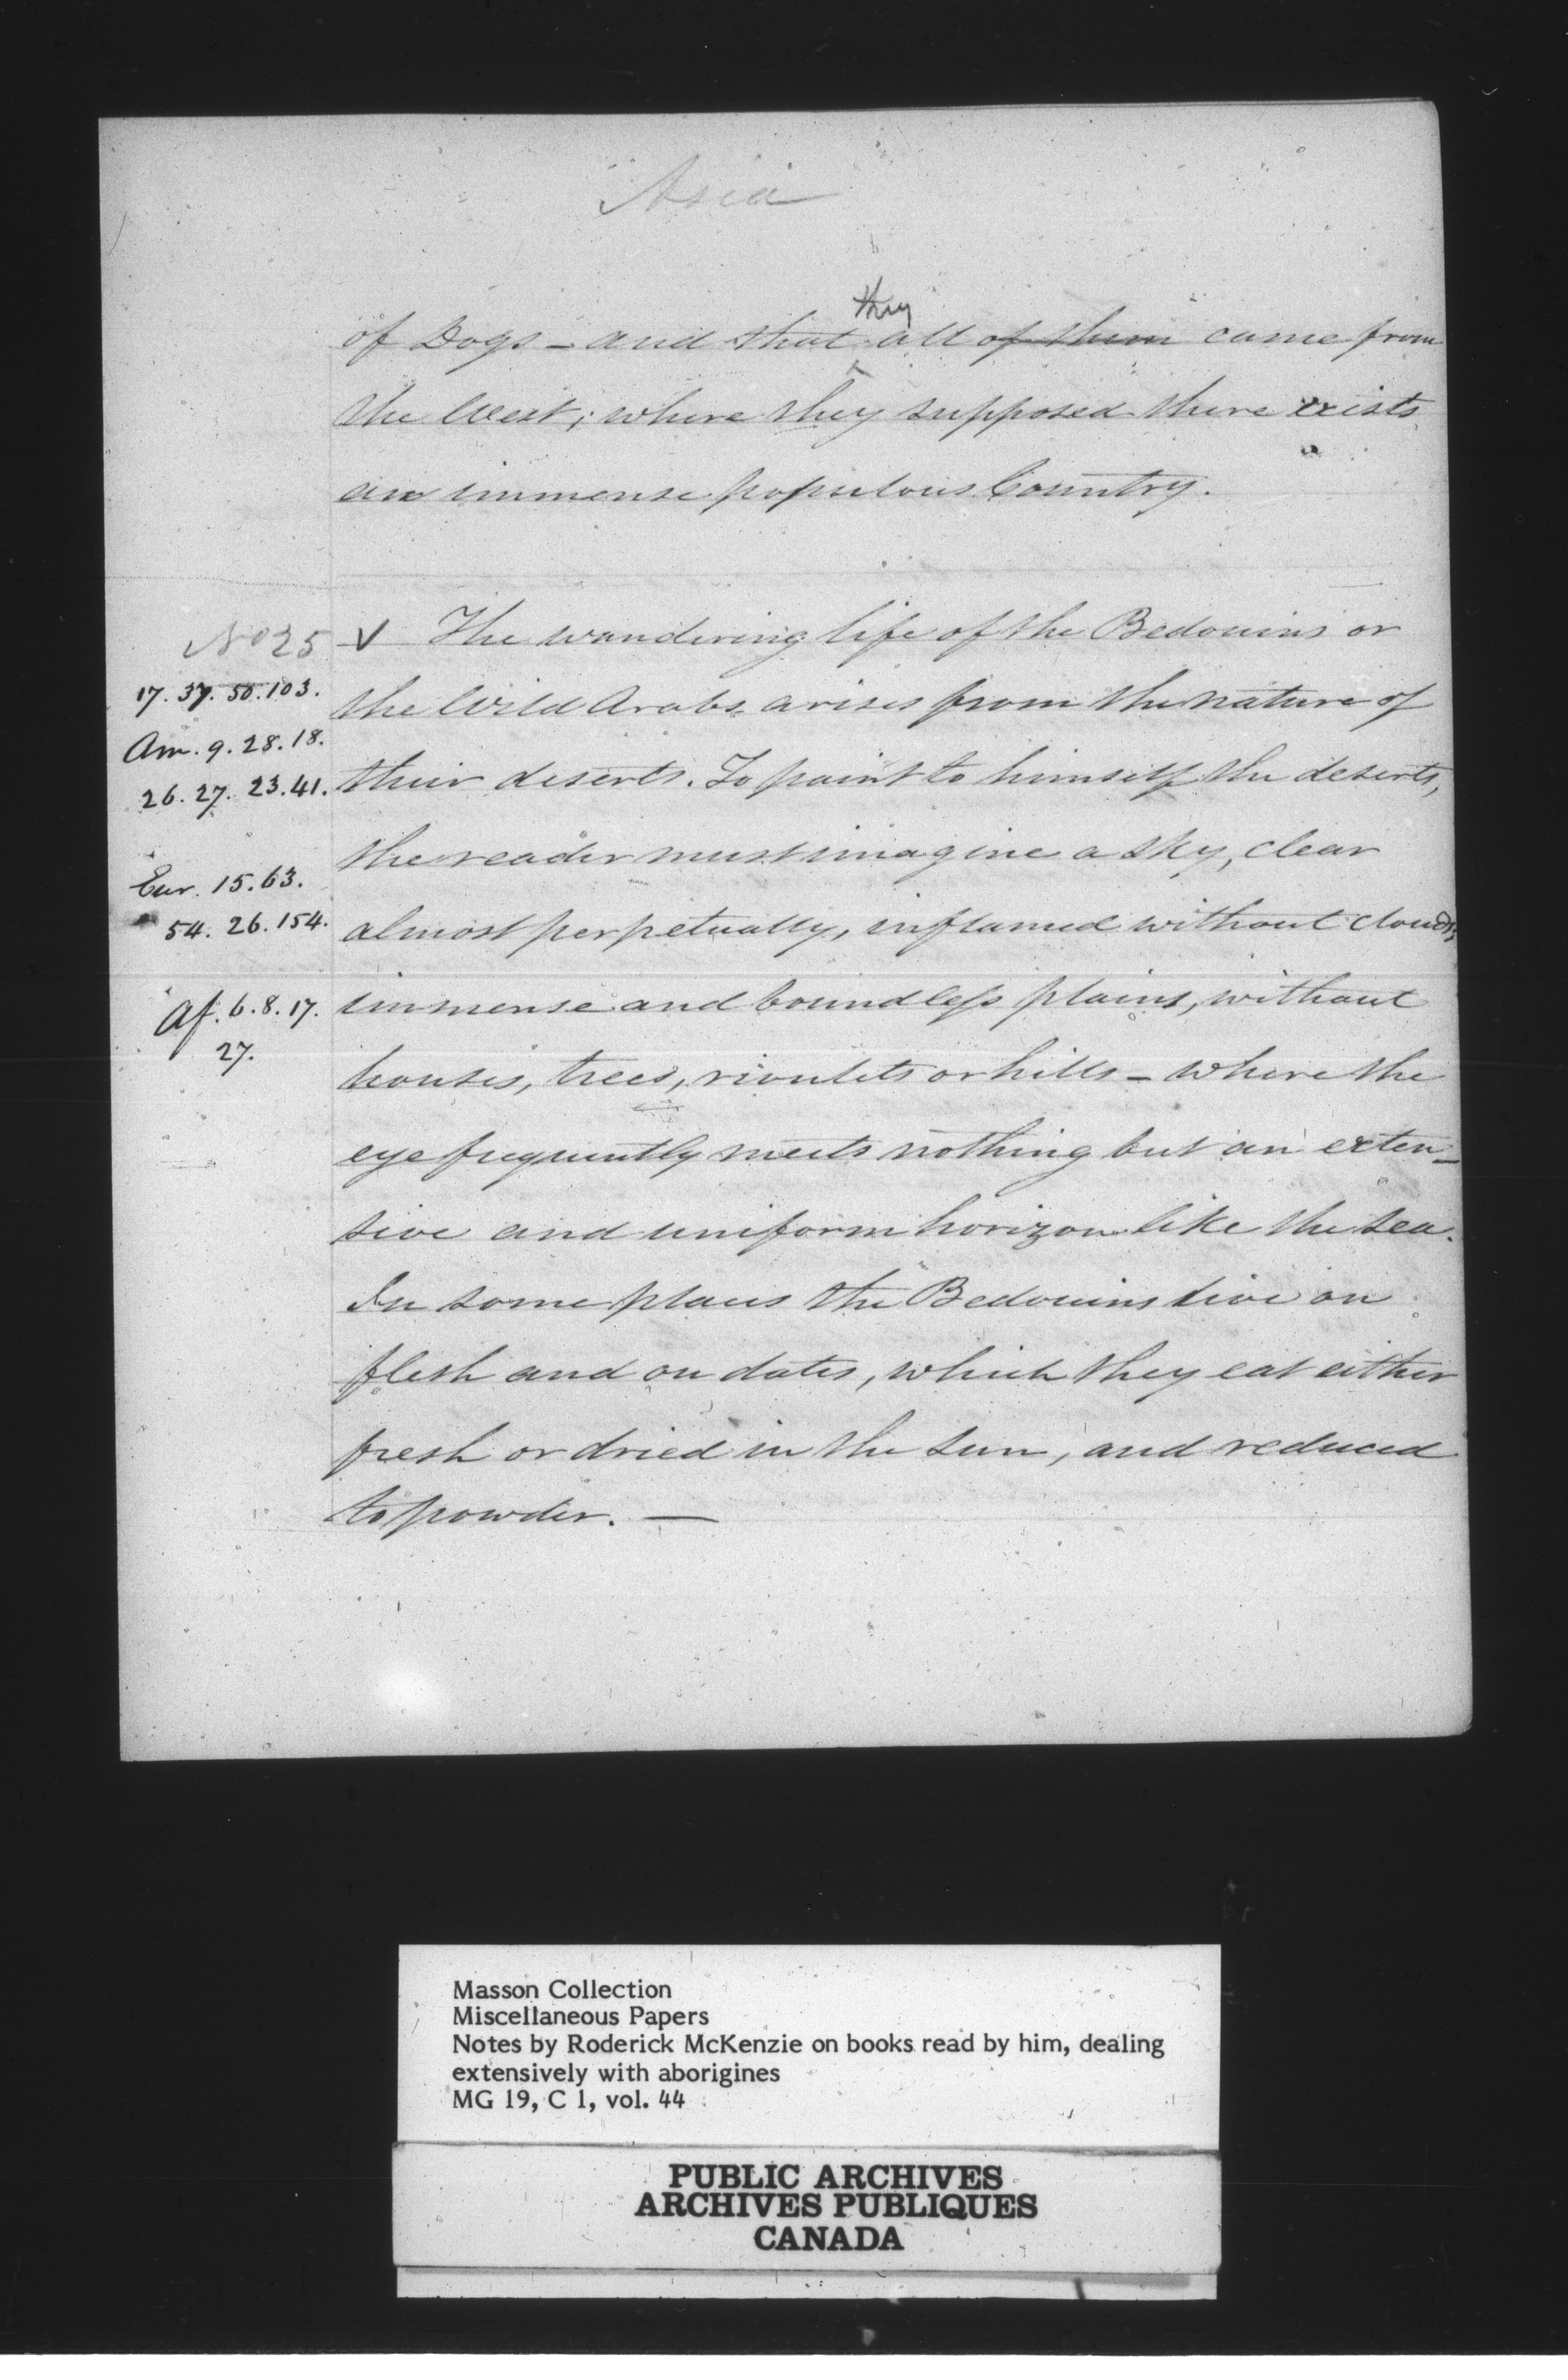 Asia
they
of Dogs – and that all of them came from
the West; where they supposed there exists
an immense populous Country.
No 25 V The wandering life of the Bedouins or
17. 37. 50. 103.
the Wild Arabs arises from the nature of
Am. 9. 28. 18.
26. 27. 23. 41.
their deserts. To paint to himself the deserts,
the reader must imagine a sky, clear
Eur. 15. 63.
54. 26. 154.
almost perpetually, inflamed without clouds,
Af. 6. 8. 17.
immense and boundless plains, without
27.
houses, trees, rivulets or hills – where the
eye frequently meets nothing but an exten-
sive and uniform horizon like the sea.
In some places the Bedouins live on
flesh and on dates, which they eat either
fresh or dried in the sun, and reduced
to powder. —
Masson Collection
Miscellaneous Papers
Notes by Roderick McKenzie on books read by him, dealing
extensively with aborigines
MG 19, C 1, vol. 44
PUBLIC ARCHIVES
ARCHIVES PUBLIQUES
CANADA